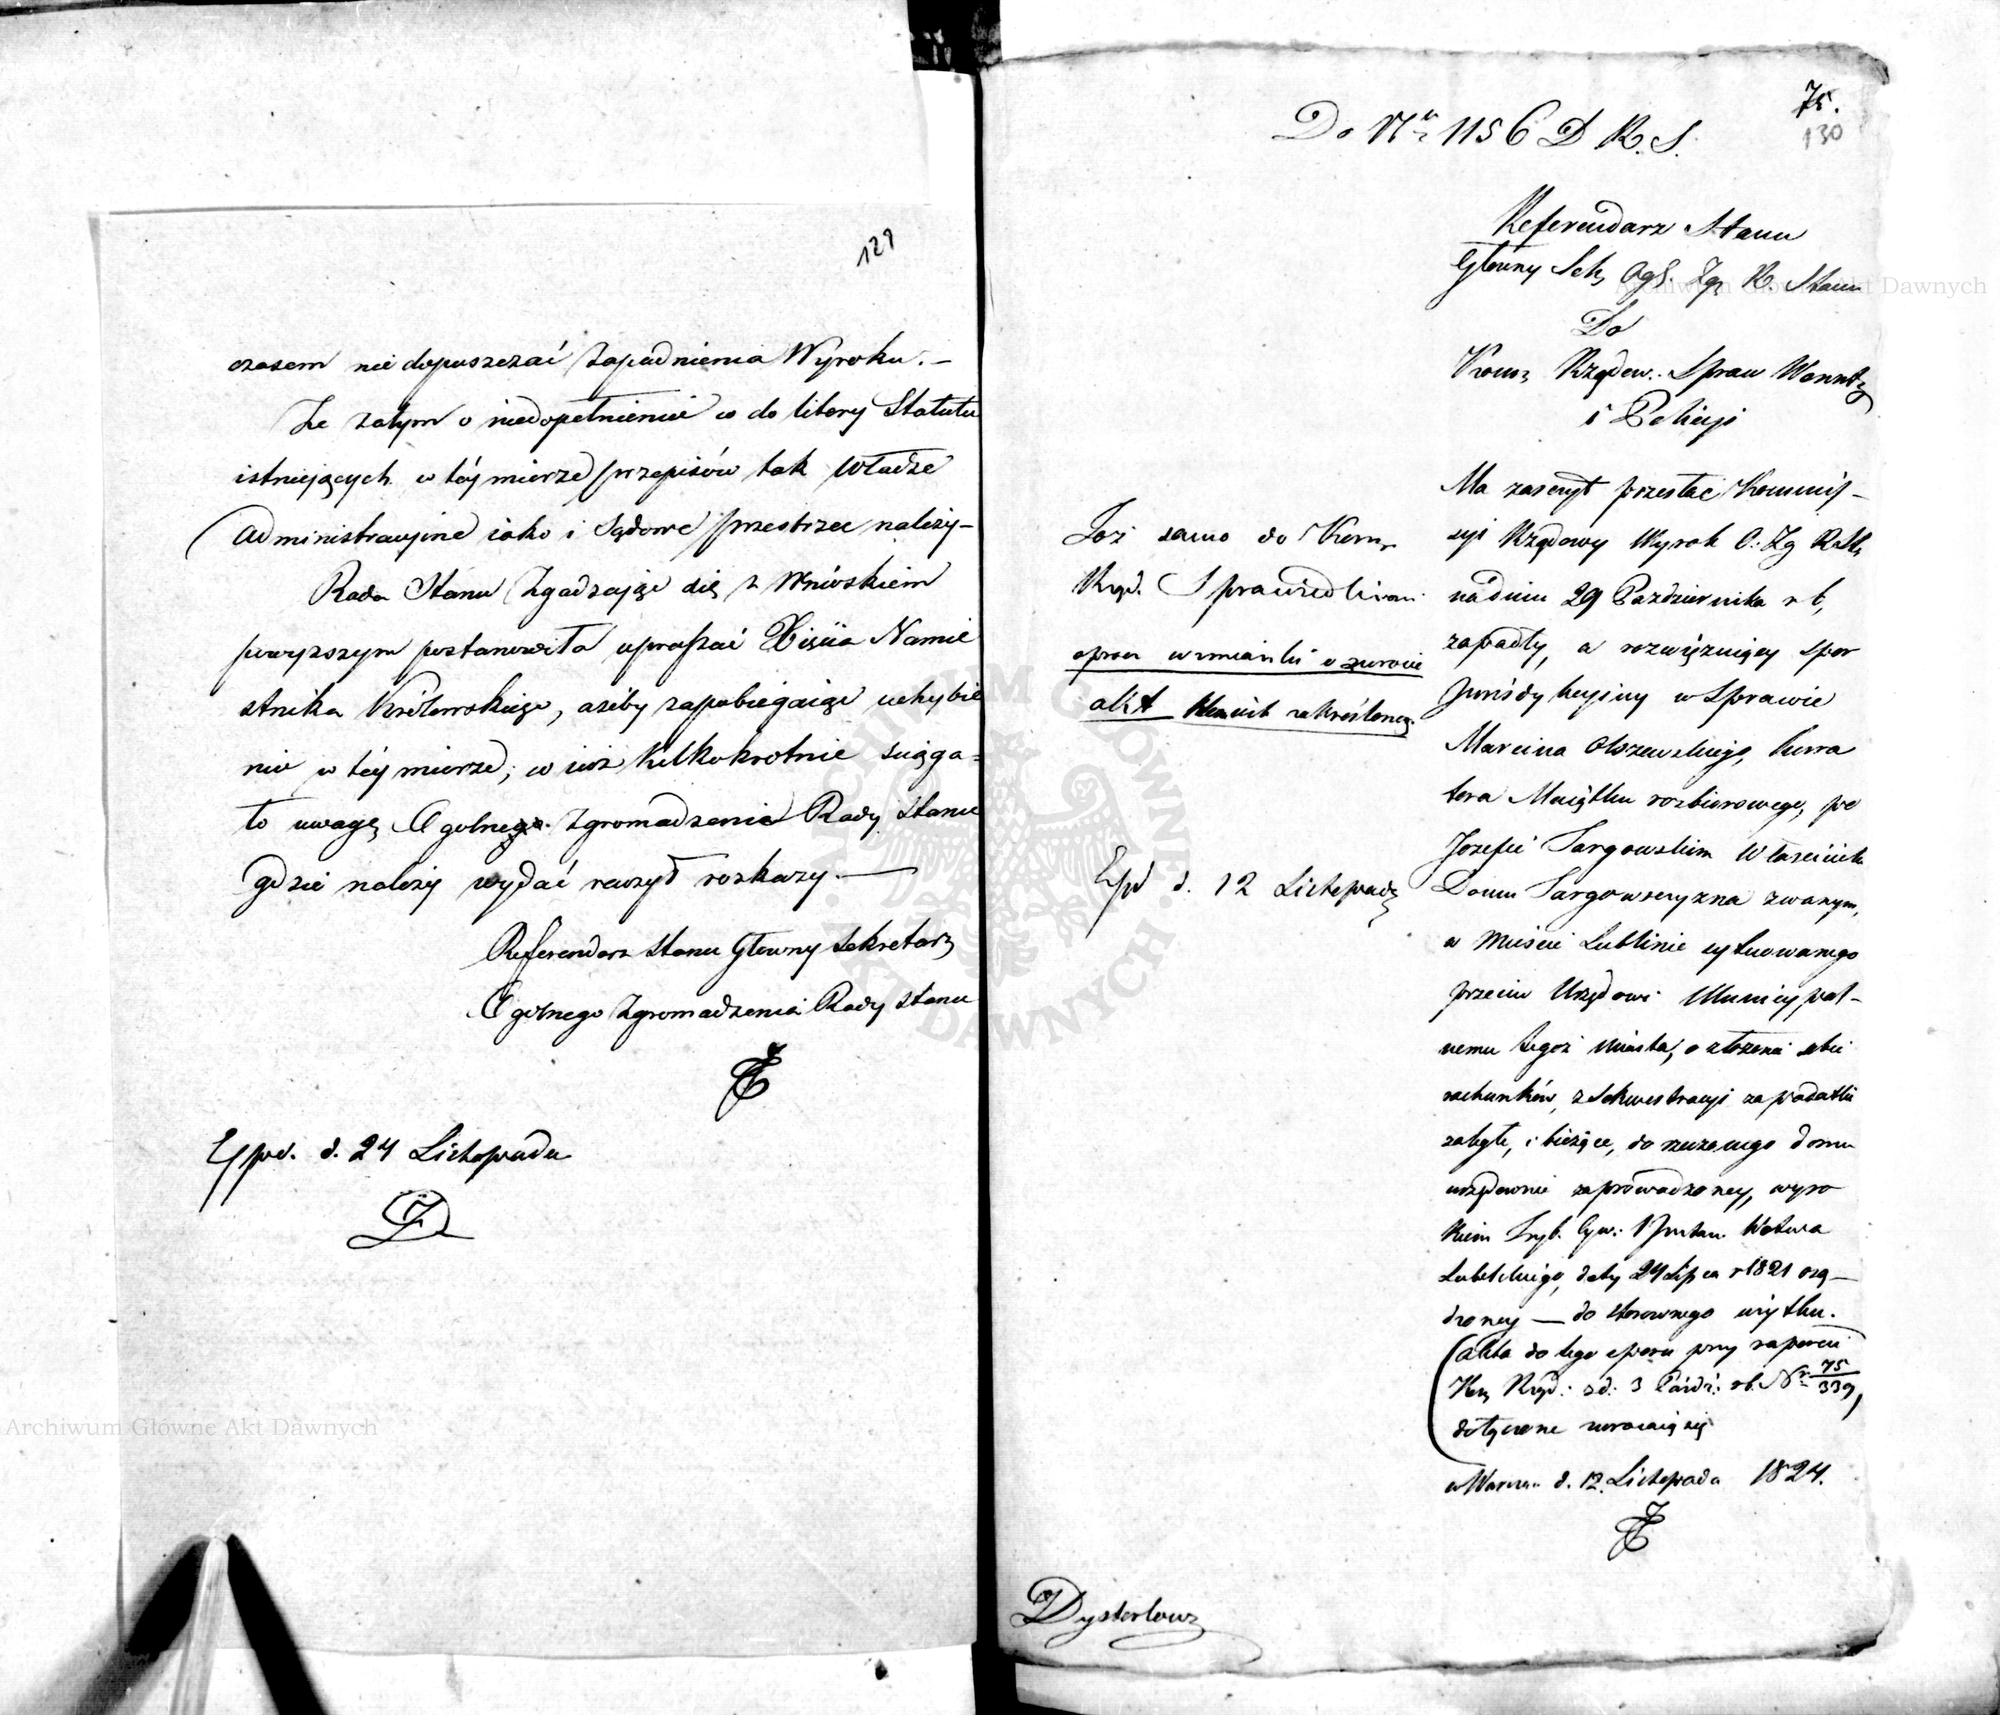 129
czasem nie dopuszczać zapadnienia Wyroku. —
Że zatym o niedopełnienie co do litery Statutu
istniejących w téy mierze przepisów tak Władze
Administracyine iako i Sądowe przestrzec należy —
Rada Stanu Zgadzając się z Wnioskiem
powyższym postanowiła upraszać Xięcia Namie
stnika Królewskiego, ażeby zapobiegaiąc uchybie
niu w téy mierze, co iuż kilkokrotnie sciąga=
ło uwagę Ogolnego Zgromadzenia Rady Stanu
gdzie należy wydać raczył rozkazy. —
Referendarz Stanu Głowny Sekretarz
Ogolnego Zgromadzenia Rady Stanu
Exped. d. 24 Listopada
75.
130
Do Nru 1156 D R. S.
Referendarz Stanu
Główny Sek. Ogł. Zgr R. Stanu
Do
Kommi Rządow. Spraw Wewnętrz
i Policyi
Ma zaszczyt przesłać Kommis-
syi Rządowy Wyrok O. Zg R St.
na dniu 29 Października r b,
zapadły, a rozwiązuiący spor
Jurisdykcyiny w Sprawie
Marcina Olszewskiego, Kura
tora Maiątku rozbiorowego, po
Jozefie Targowskim Właścicielu
Domu Targowszczyzna zwanym,
w Mieście Lublinie sytuowanego
przeciw Urzędowi Municypal-
nemu tegoż Miasta, o złożenie sobie
rachunków, z Sekwestracyi za podatki
zaległe, i bieżące, do rzeczonego domu
urzędownie zaprowadzoney, wyro
kiem Tryb. Cyw. I Instan. Wotwa
Lubelskiego, daty 24 Lipca r 1821 osą-
dzoney — do stosownego użytku.
(Akta do tego sporu przy rapporcie
Kom Rząd. z d. 3 Paźdź: r b. Nr 75/339,
dołączone zwracaią się
w Warsza. d. 12. Listopada 1824.
Toż samo do Kom
Rząd. Sprawiedliwości
oprocz wzmianki o zwrocie
akt zakreśloney.
Exp d. 12 Listopada
Dysterlow
Archiwum Główne Akt Dawnych
Archiwum Główne Akt Dawnych
ARCHIWUM GŁÓWNE AKT DAWNYCH